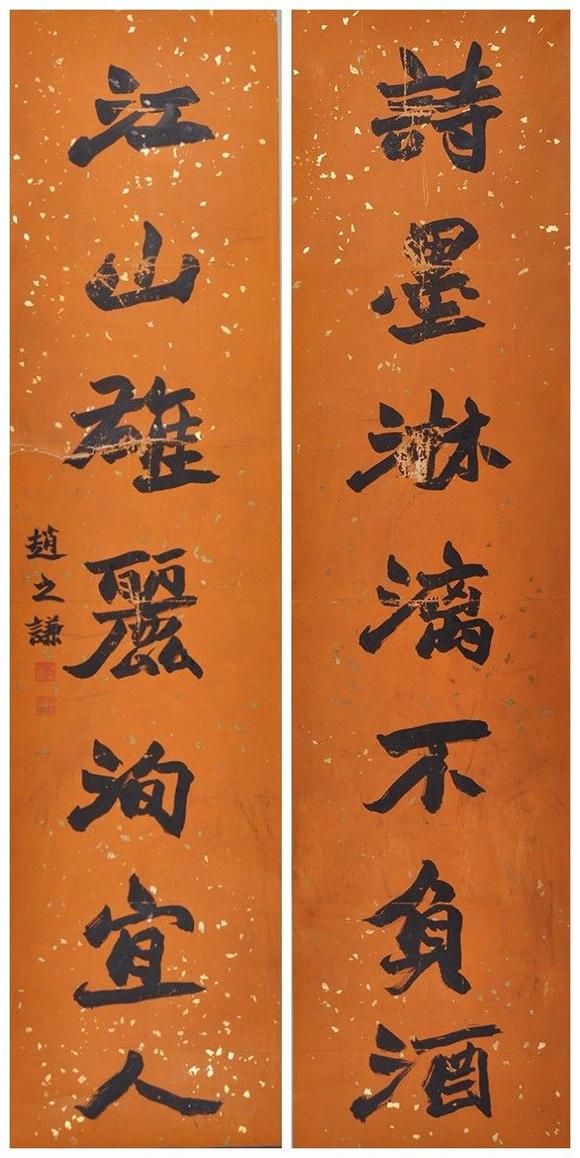 詩墨淋漓不負酒
江山雄麗洵宜人
趙之謙